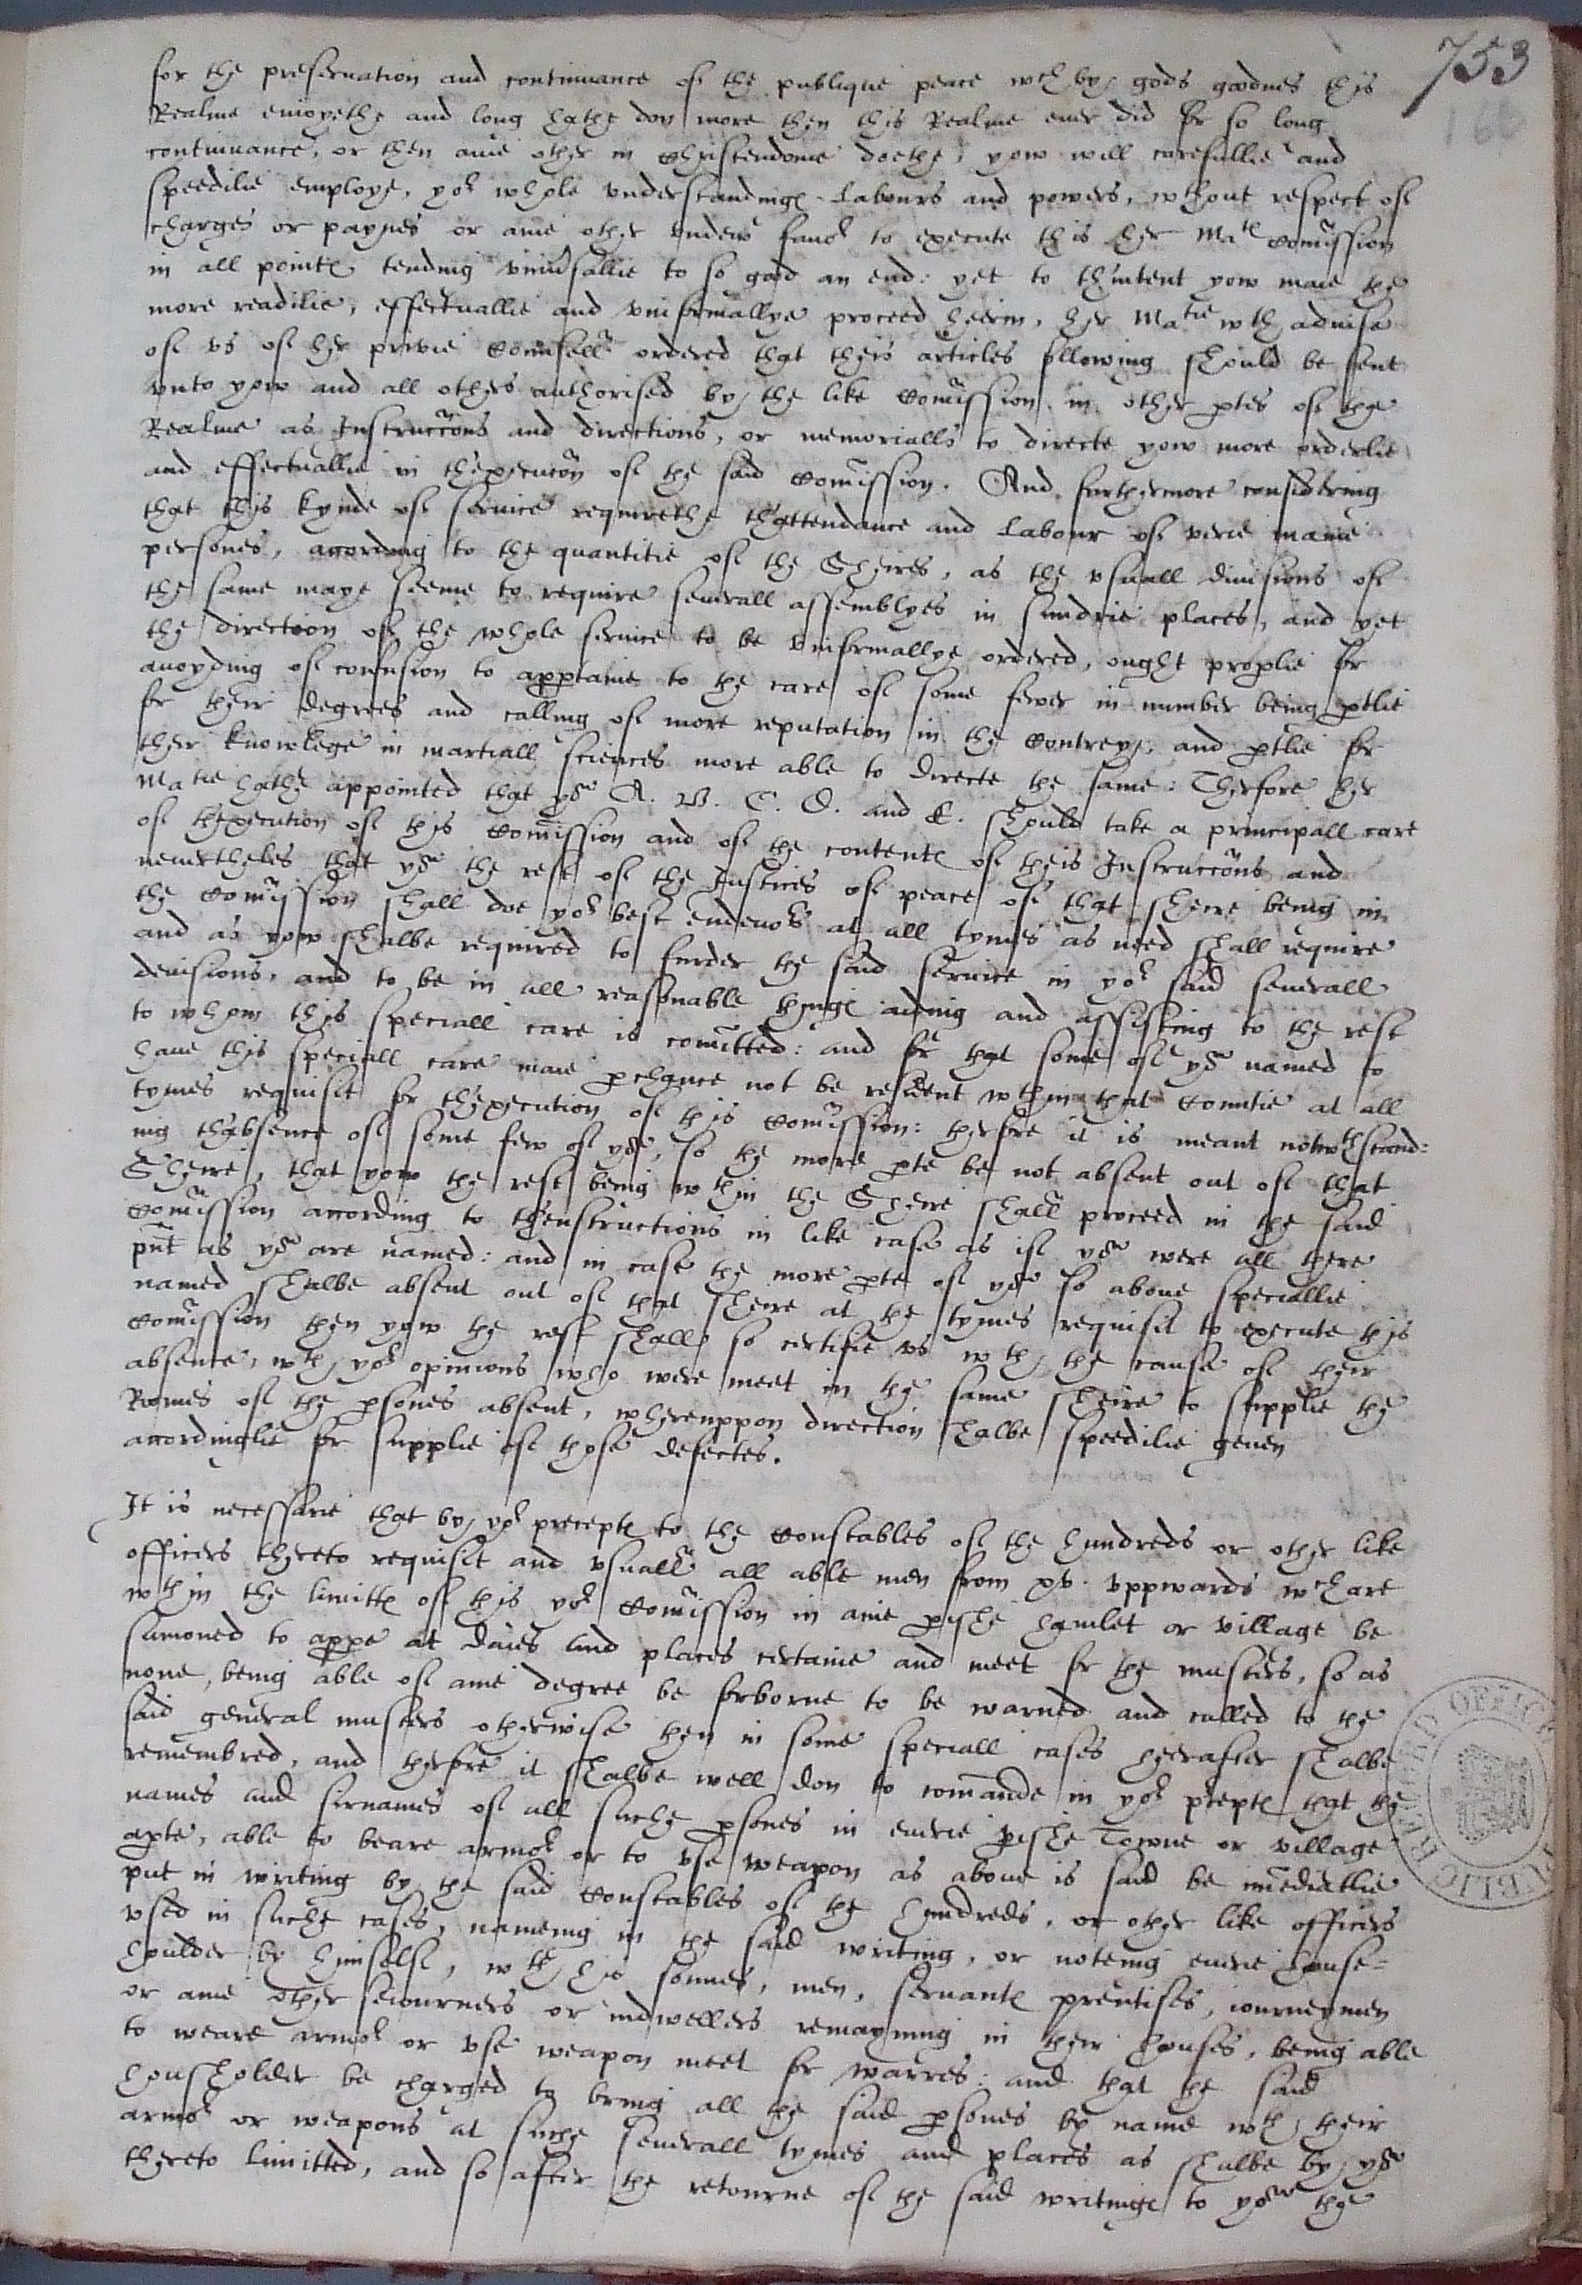 753
166
for the preseruation and continuance of the publique peace wch by gods goodnes this
Realme enioyethe and long hathe don more then this Realme euer did for so long
continuance, or then anie other in Christendome doethe, yow will carefullie and
speedilie employe, yor whole vnderstandinges labours and powers, wthout respect of
charges or paynes or anie other vndew fauor to execute this her Mates Comission
in all pointes tending vniuersallie to so good an end: yet to thintent yow maie the
more readilie, effectuallie and vniformallye proceed heerin, her Matie wth aduise
of vs of her privie Counsell ordered that theis articles following should be sent
vnto yow and all others authorised by the like Comission in other ptes of the
Realme as Instruccons and directions, or memorialls to directe yow more orderlie
and effectuallie in thexecucon of the said Comission. And furthermore considering
that this kynde of seruice requirethe thattendance and labour of verie manie
persones, according to the quantitie of the Sheires, as the vsuall diuisions of
the same maye seeme to require seuerall assemblyes in sundrie places, and yet
the direction of the whole seruice to be vniformallye ordered, ought proplie for
auoyding of confusion to apptaine to the care of some fewer in number being ptlie
for their degrees and calling of more reputation in the Contrey, and ptlie for
ther knowlege in martiall sciences more able to directe the same: Therfore her
Matie hathe appointed that yow A. B. C. D. and E. should take a principall care
of thexecution of this Comission and of the contentes of theis Instruccons and
neuertheles that yow the rest of the Iustices of peace of that sheire being in
the Comission shall doe yor best endeuors at all tymes as need shall require
and as yow shalbe required to furder the said seruice in yor said seuerall
deuisions, and to be in all reasonable thinges aiding and assisting to the rest
to whom this speciall care is comitted: and for that some of yow named to
haue this speciall care maie pchance not be resident wthin that Countie at all
tymes requisit for thexecution of this Comission: therfore it is meant notwthstand:
ing thabsence of some few of yow, so the more pte be not absent out of that
Sheire, that yow the rest being wthin the Sheire shall proceed in the said
Comission according to thenstructions in like case as if yow were all there
pnt as yow are named: and in case the more pte of yow so aboue speciallie
named shalbe absent out of that sheire at the tymes requisit to execute this
Comission then yow the rest shall so certifie vs wth the cause of their
absence, wth yor opinions who were meet in the same sheire to supplie the
Romes of the psones absent, wherevppon direction shalbe speedilie geuen
accordinglie for supplie of those defectes.
It is necessarie that by yor preceptes to the Constables of the hundreds or other like
officers thereto requisit and vsuall all able men from xvi. vppwards wch are
wthin the limittes of this yor Comission in anie pishe hamlet or village be
sumoned to appe at daies and places certaine and meet for the musters, so as
none, being able of anie degree be forborne to be warned and called to the
said general musters otherwise then in some speciall cases heerafter shalbe
remembred, and therfore it shalbe well don to comande in yor pceptes that the
names and sirnames of all suche psones in euerie pishe Towne or village
apte, able to beare armor or to vse weapon as aboue is said be imediatlie
put in writing by the said Constables of the hundreds, or other like officers
vsed in suche cases, nameing in the said writing, or noteing euerie house=
houlder by himself, wth his sonnes, men, seruantes prentises, iourneymen
or anie other seiourners or indwellers remayning in their houses, being able
to weare armor or vse weapon meet for warres: and that the said
housholder be charged to bring all the said psones by name wth their
armor or weapons at suche seuerall tymes and places as shalbe by yow
thereto limitted, and so after the retourne of the said writinges to yow the
PUBLIC RECORD OFFICE